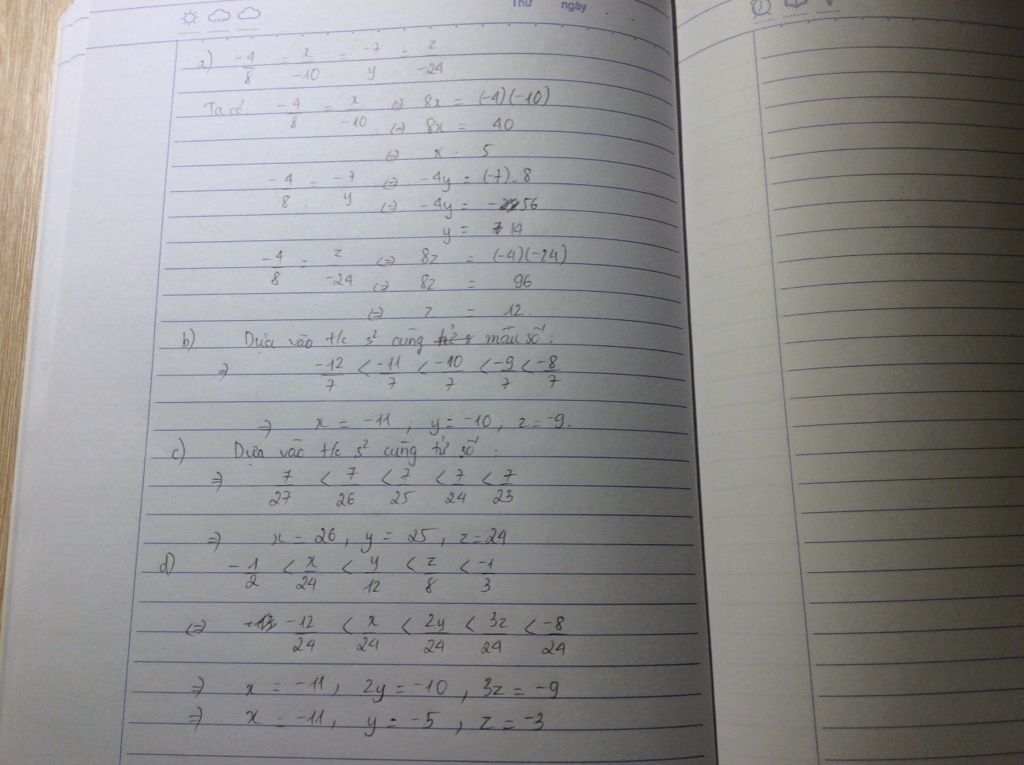 Thứ ngày
a) -4/8 = x/-10 = -7/y = z/-24
Ta có -4/8 = x/-10 ⇔ 8x = (-4)(-10)
⇔ 8x = 40
⇔ x = 5
-4/8 = -7/y ⇔ -4y = (-7).8
⇔ -4y = -56
y = 14
-4/8 = z/-24 ⇔ 8z = (-4)(-24)
⇔ 8z = 96
⇔ z = 12.
b) Dựa vào t/c s² cùng mẫu số:
⇒ -12/7 < -11/7 < -10/7 < -9/7 < -8/7
⇒ x = -11 ; y = -10 ; z = -9.
c) Dựa vào t/c s² cùng tử số :
⇒ 7/27 < 7/26 < 7/25 < 7/24 < 7/23
⇒ x = 26, y = 25, z = 24
d) -1/2 < x/24 < y/12 < z/8 < -1/3
⇔ -12/24 < x/24 < 2y/24 < 3z/24 < -8/24
⇒ x = -11, 2y = -10, 3z = -9
⇒ x = -11, y = -5, z = -3